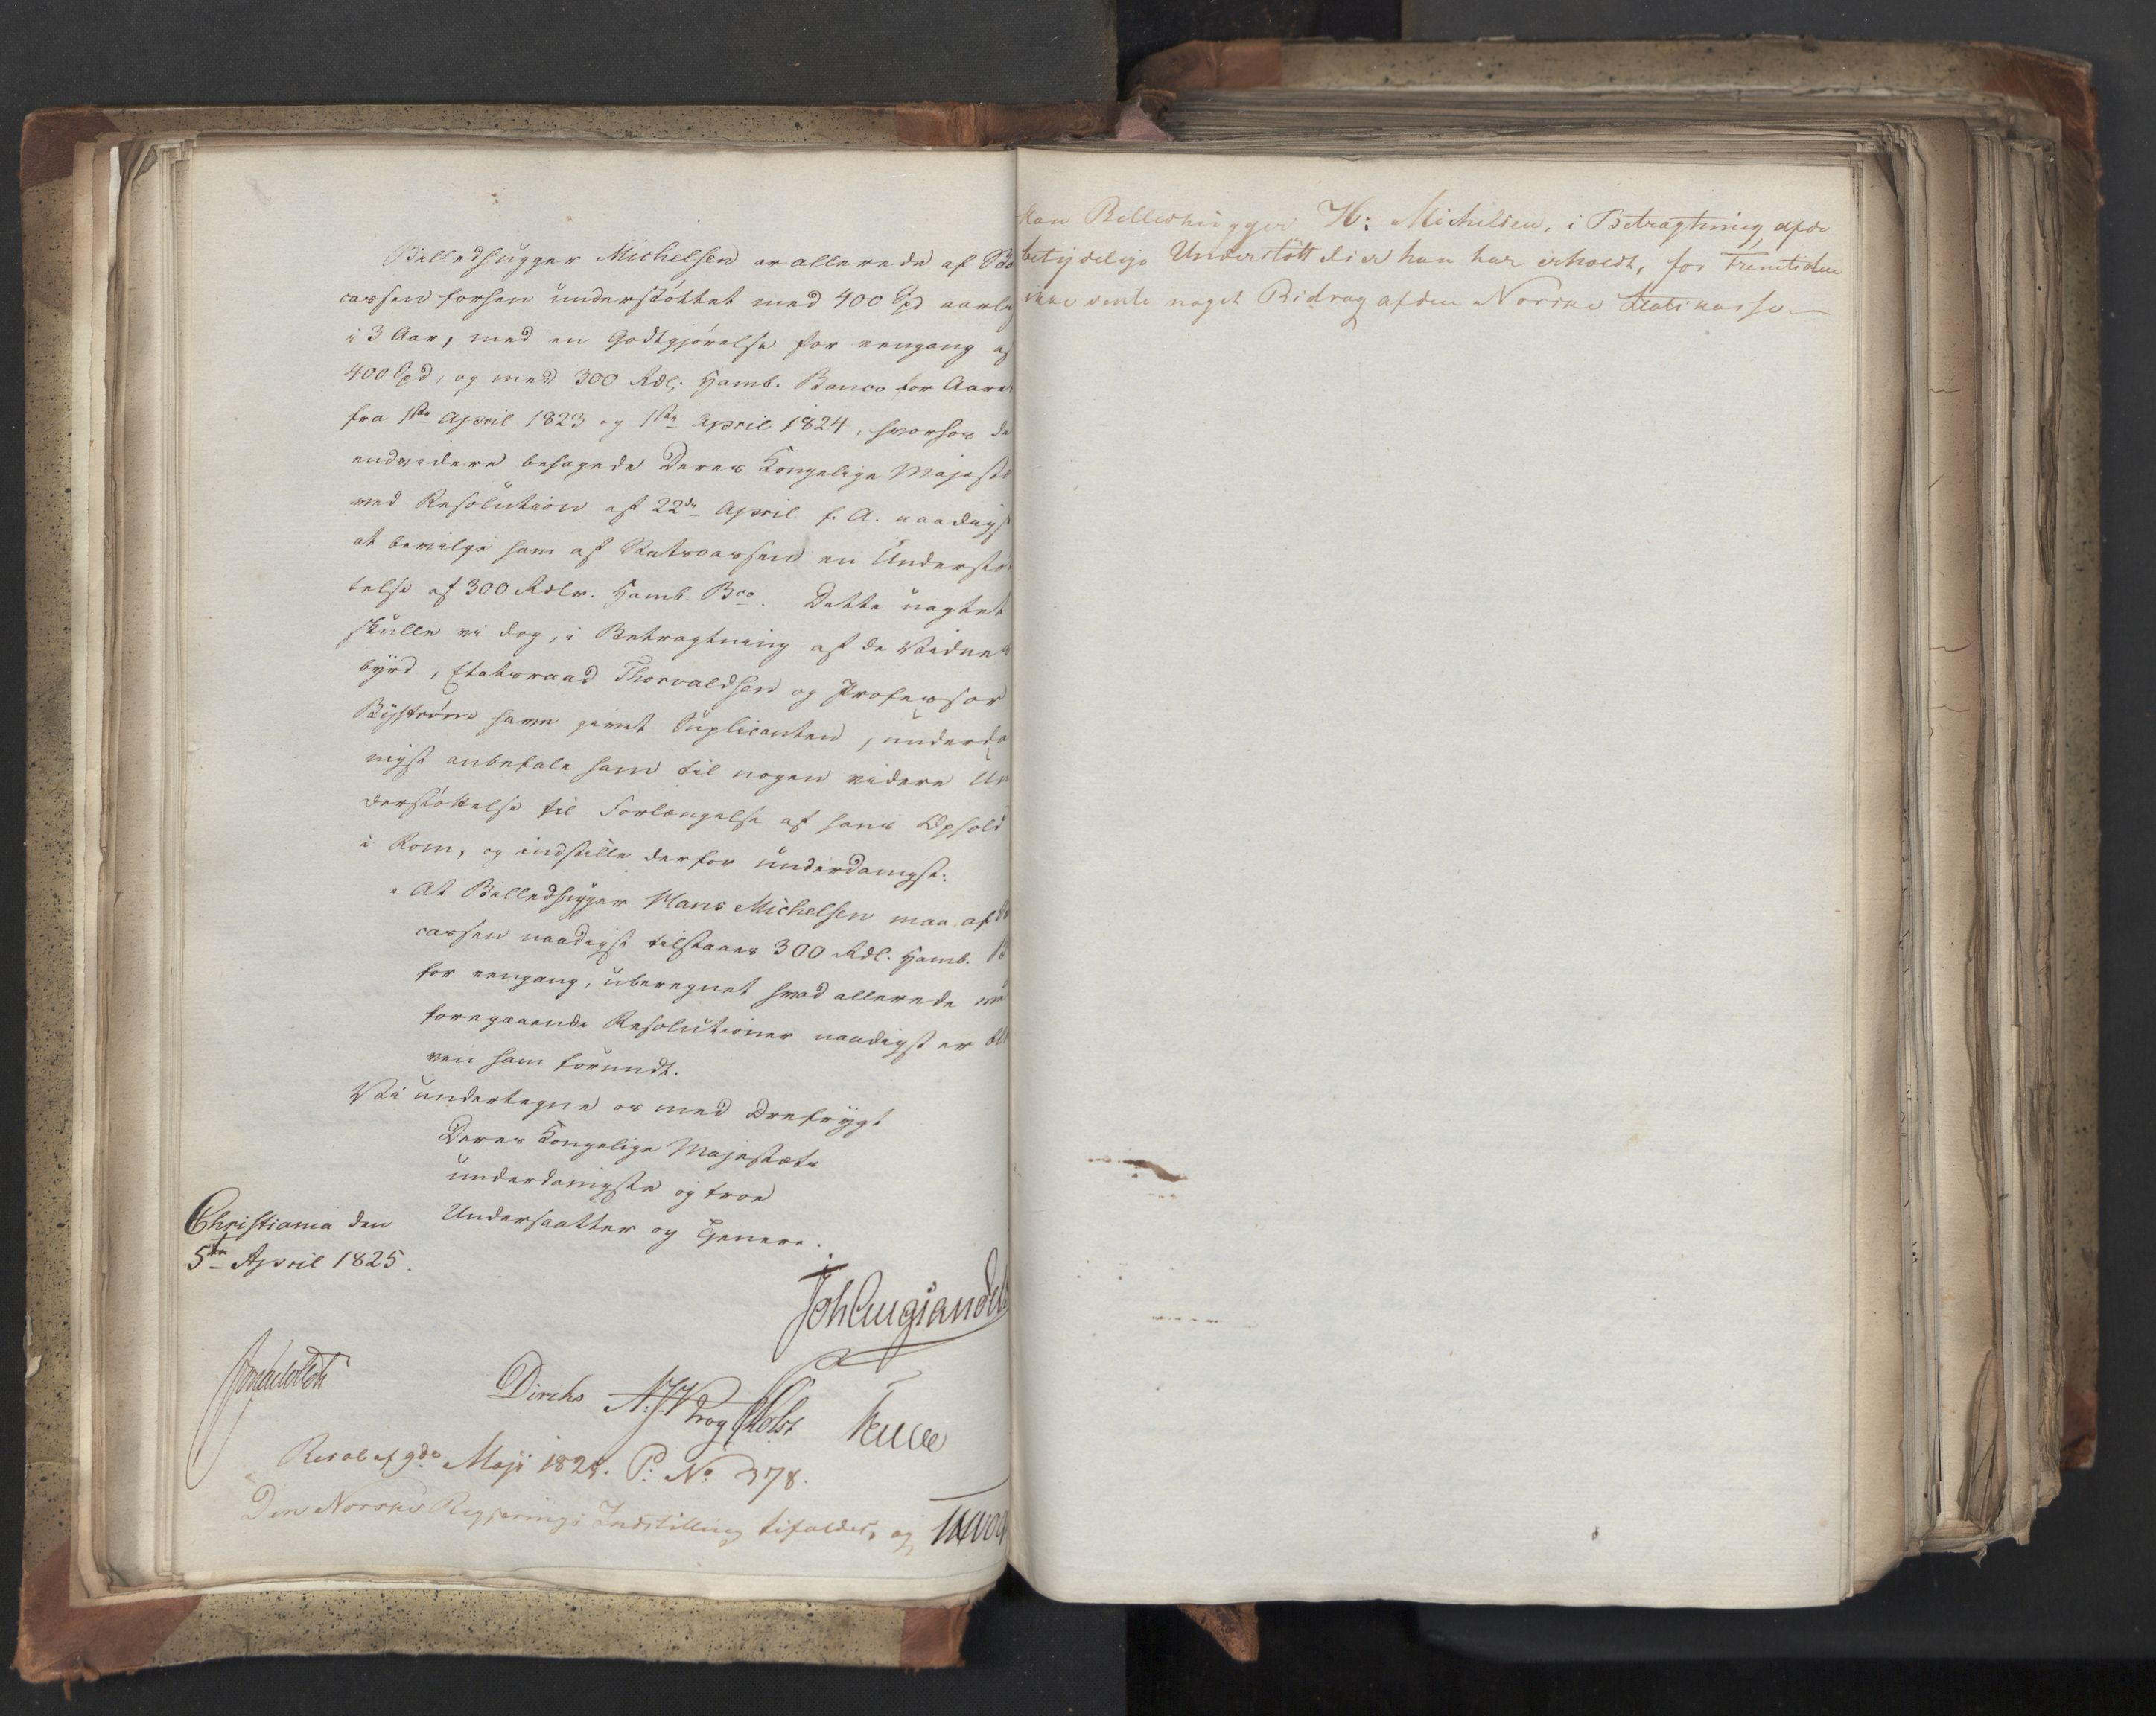 Billedhugger Michelsen er allerede af Sta
cassen forhen understöttet med 400 Spd aarlig
i 3 Aar, med en Godtgjörelse for eengang af
400 Spd, og med 300 Rdl. Hamb. Banco for Aaret
fra 1ste April 1823 og 1ste April 1824, hvorhos de
endvidere behagede Deres Kongelige Majestæ
ved Resolution af 22de April f. A. naadigst
at bevilge ham af Statscassen en Understö
telse af 300 Rdlr. Hamb. Bco. Dette uagtet
skulle vi dog, i Betragtning af de Vidnes
byrd, Etatsraad Thorvaldsen og Professor
Byström have givet Suplicanten, underda
nigst anbefale ham til nogen videre Un
derstöttelse til Forlængelse af hans Ophold
i Rom, og indstille derfor underdanigst:
"At Billedhugger Hans Michelsen maa af St
cassen naadigst tilstaaes 300 Rdl. Hamb. B
for eengang, uberegnet hvad allerede ve
foregaaende Resolutioner naadigst er ble
ven ham forundt.
Vi undertegne os med Ærefrygt
Deres Kongelige Majestæts
underdanigste og troe
Undersaatter og Tjenere.
Christiania den
5te April 1825.
Joh Aug Sandels
Sommerhielm
Diriks N. J. Krog Holst
Resol af 9de Maji 1825. P: No 378.
Den Norske Regjerings Indstilling bifaldes, og
kan Billedhugger H: Michelsen, i Betragtning af de
betydelige Understöttelser han har erholdt, for Fremtiden
ikke vente noget Bidrag af den Norske Statskasse.